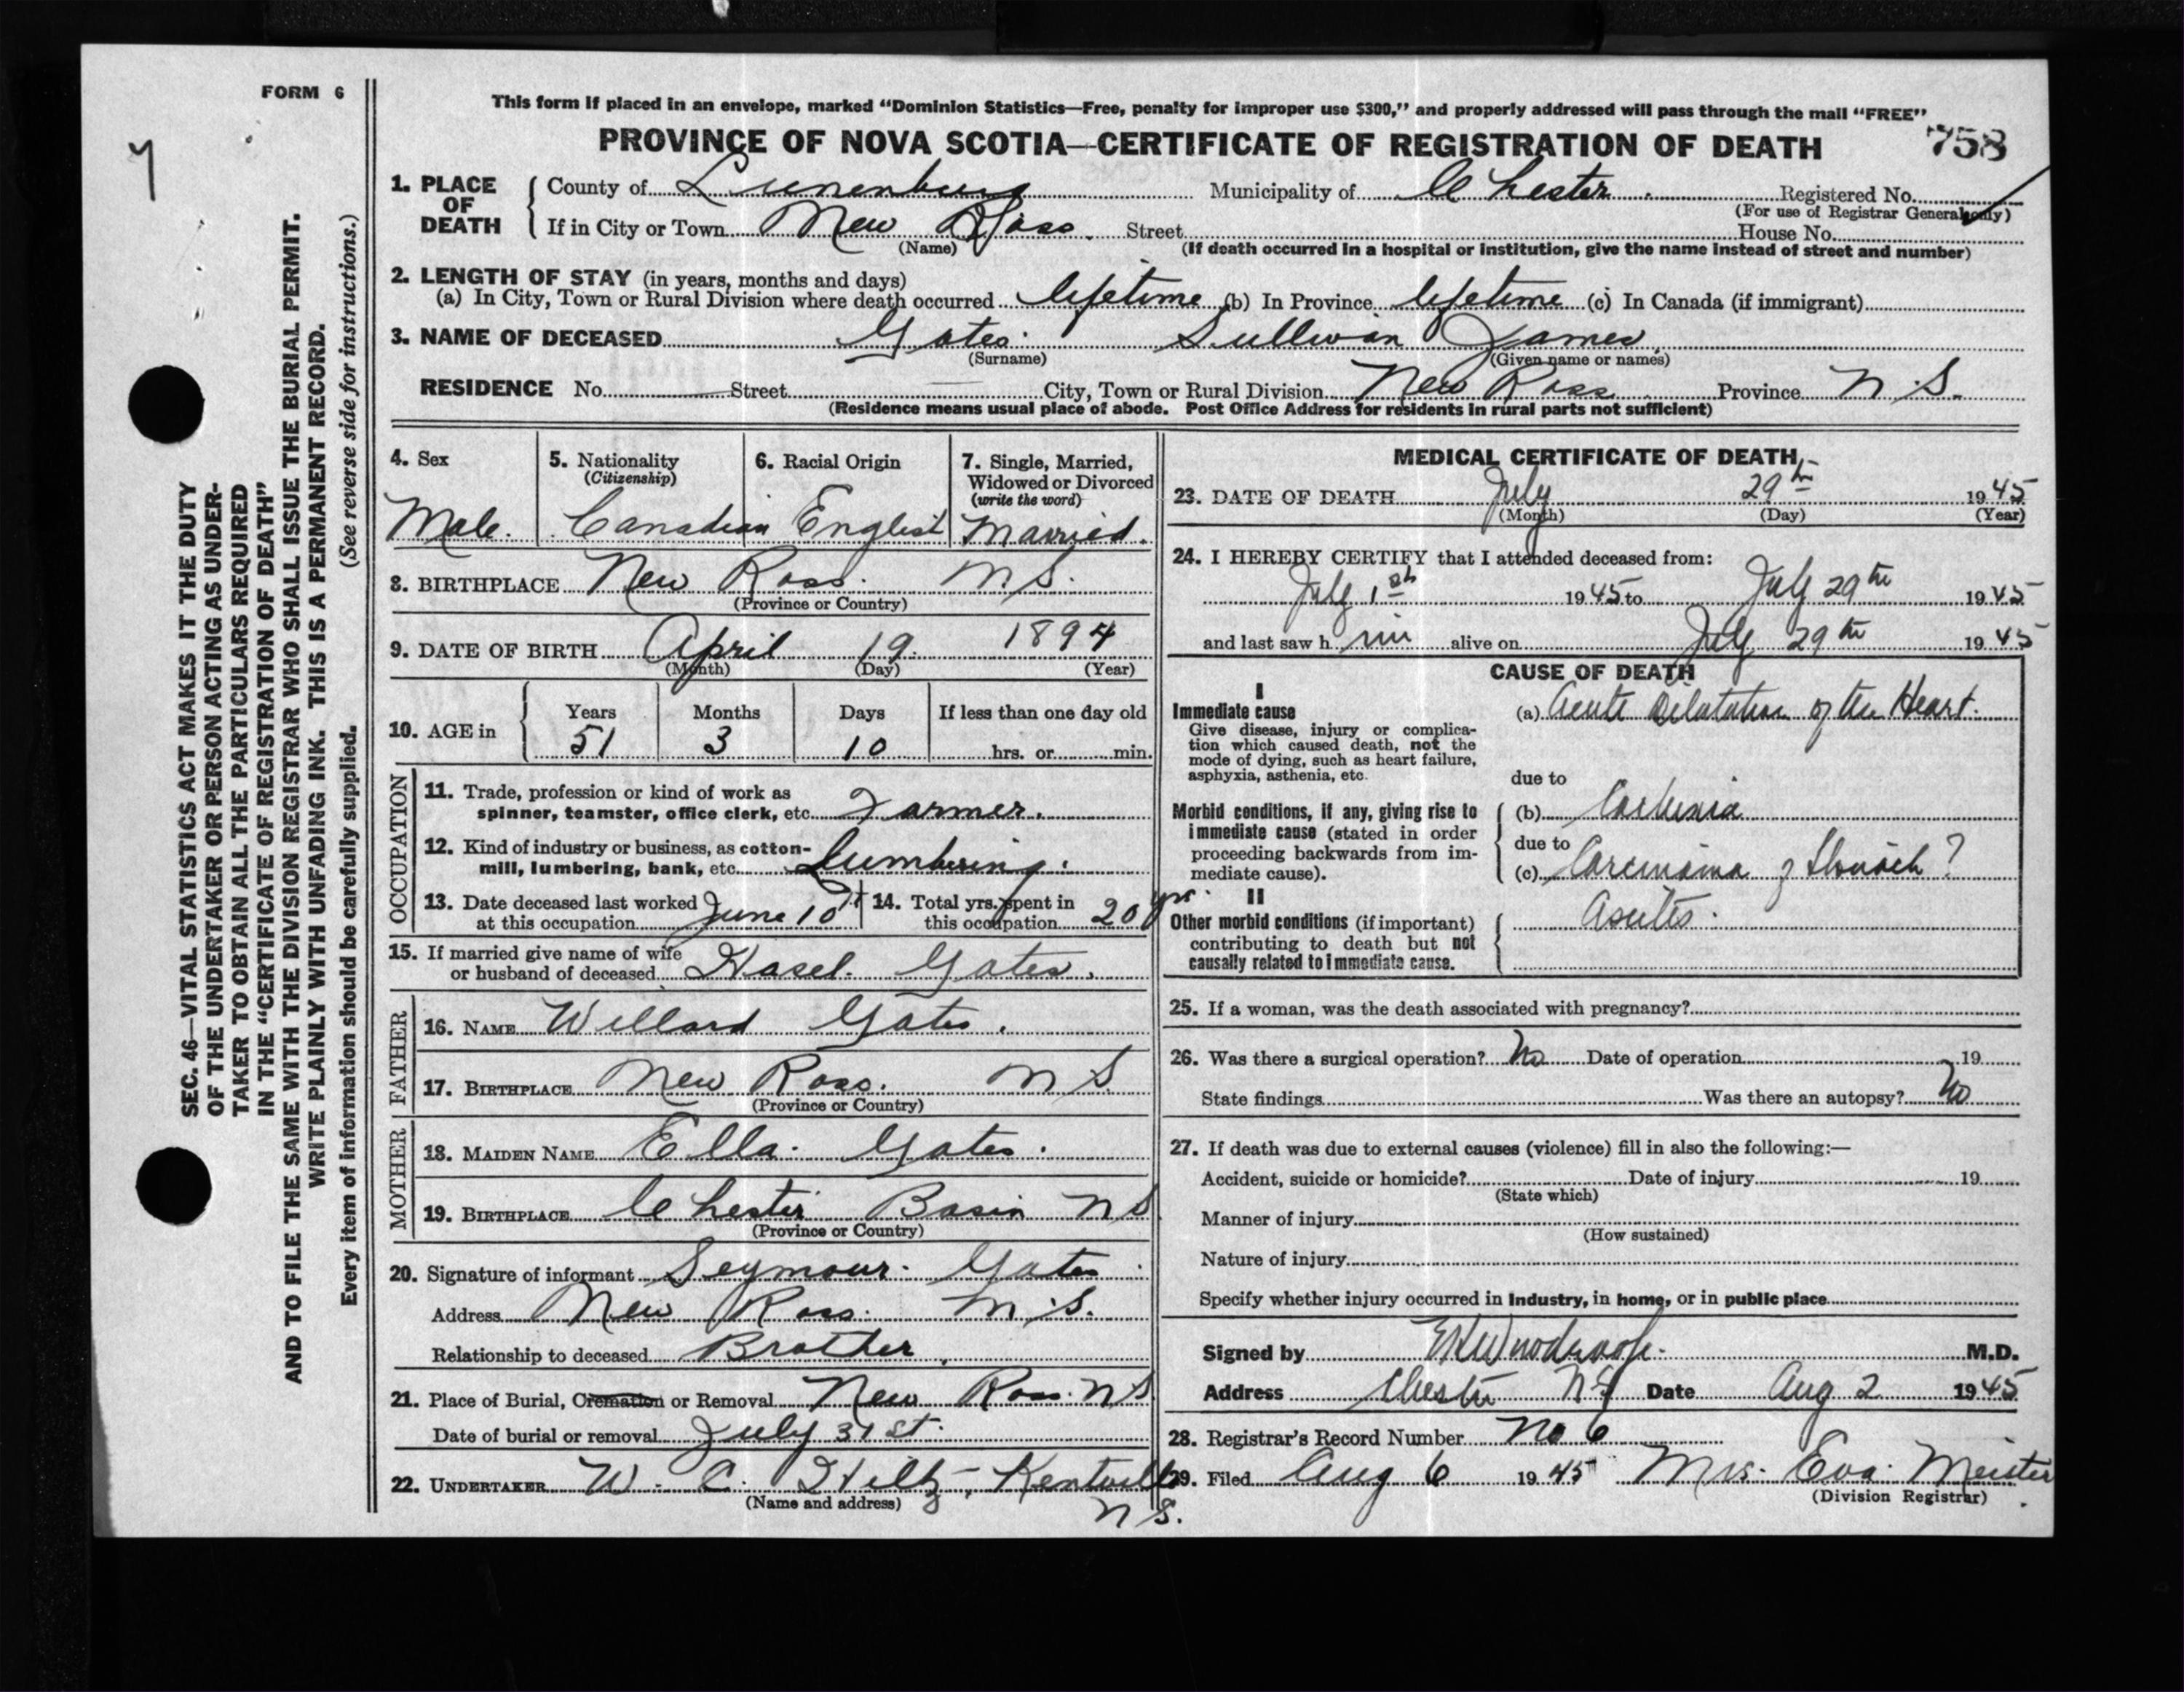 FORM 6
This form if placed in an envelope, marked “Dominion Statistics—Free, penalty for improper use $300,” and properly addressed will pass through the mail “FREE”
PROVINCE OF NOVA SCOTIA—CERTIFICATE OF REGISTRATION OF DEATH 758
1. PLACE OF DEATH
County of Lunenburg Municipality of Chester Registered No.
(For use of Registrar General only)
If in City or Town New Ross. Street House No.
(Name) (If death occurred in a hospital or institution, give the name instead of street and number)
2. LENGTH OF STAY (in years, months and days)
(a) In City, Town or Rural Division where death occurred lifetime (b) In Province lifetime (c) In Canada (if immigrant)
3. NAME OF DECEASED Gates Sullivan James
(Surname) (Given name or names)
RESIDENCE No. Street City, Town or Rural Division New Ross Province N.S.
(Residence means usual place of abode. Post Office Address for residents in rural parts not sufficient)
4. Sex
Male.
5. Nationality
(Citizenship)
Canadian
6. Racial Origin
English
7. Single, Married,
Widowed or Divorced
(write the word)
Married.
8. BIRTHPLACE New Ross. N.S.
(Province or Country)
9. DATE OF BIRTH April 19. 1894
(Month) (Day) (Year)
10. AGE in Years Months Days If less than one day old
51 3 10 hrs. or min.
OCCUPATION
11. Trade, profession or kind of work as
spinner, teamster, office clerk, etc. Farmer.
12. Kind of industry or business, as cotton-
mill, lumbering, bank, etc. Lumbering.
13. Date deceased last worked
at this occupation June 10
14. Total yrs. spent in
this occupation 20 yrs.
15. If married give name of wife
or husband of deceased Hasel. Gates.
FATHER
16. NAME Willard Gates.
17. BIRTHPLACE New Ross. N S.
(Province or Country)
MOTHER
18. MAIDEN NAME Ella. Gates.
19. BIRTHPLACE Chester Basin N S
(Province or Country)
20. Signature of informant Seymour. Gates
Address New Ross. N.S.
Relationship to deceased Brother.
21. Place of Burial, Cremation or Removal New Ross. N S.
Date of burial or removal July 31 st.
22. UNDERTAKER W. C. Hiltz, Kentville
(Name and address) N S.
MEDICAL CERTIFICATE OF DEATH
23. DATE OF DEATH July 29th 1945
(Month) (Day) (Year)
24. I HEREBY CERTIFY that I attended deceased from:
July 1st 1945 to July 29th 1945
and last saw him alive on July 29th 1945
CAUSE OF DEATH
I
Immediate cause
Give disease, injury or complica-
tion which caused death, not the
mode of dying, such as heart failure,
asphyxia, asthenia, etc.
(a) Acute Dilatation of the Heart.
due to
Morbid conditions, if any, giving rise to
immediate cause (stated in order
proceeding backwards from im-
mediate cause).
(b) Cachexia
due to
(c) Carcinoma of Stomach?
II
Other morbid conditions (if important)
contributing to death but not
causally related to immediate cause.
Ascites.
25. If a woman, was the death associated with pregnancy?
26. Was there a surgical operation? No Date of operation 19
State findings Was there an autopsy? No
27. If death was due to external causes (violence) fill in also the following:—
Accident, suicide or homicide? Date of injury 19
(State which)
Manner of injury
(How sustained)
Nature of injury
Specify whether injury occurred in industry, in home, or in public place
Signed by M.D.
Address Chester N.S Date Aug 2 1945
28. Registrar's Record Number No 6
29. Filed Aug 6 1945 Mrs. Eva. Meister
(Division Registrar)
SEC. 46—VITAL STATISTICS ACT MAKES IT THE DUTY
OF THE UNDERTAKER OR PERSON ACTING AS UNDER-
TAKER TO OBTAIN ALL THE PARTICULARS REQUIRED
IN THE “CERTIFICATE OF REGISTRATION OF DEATH”
AND TO FILE THE SAME WITH THE DIVISION REGISTRAR WHO SHALL ISSUE THE BURIAL PERMIT.
WRITE PLAINLY WITH UNFADING INK. THIS IS A PERMANENT RECORD.
(See reverse side for instructions.)
Every item of information should be carefully supplied.